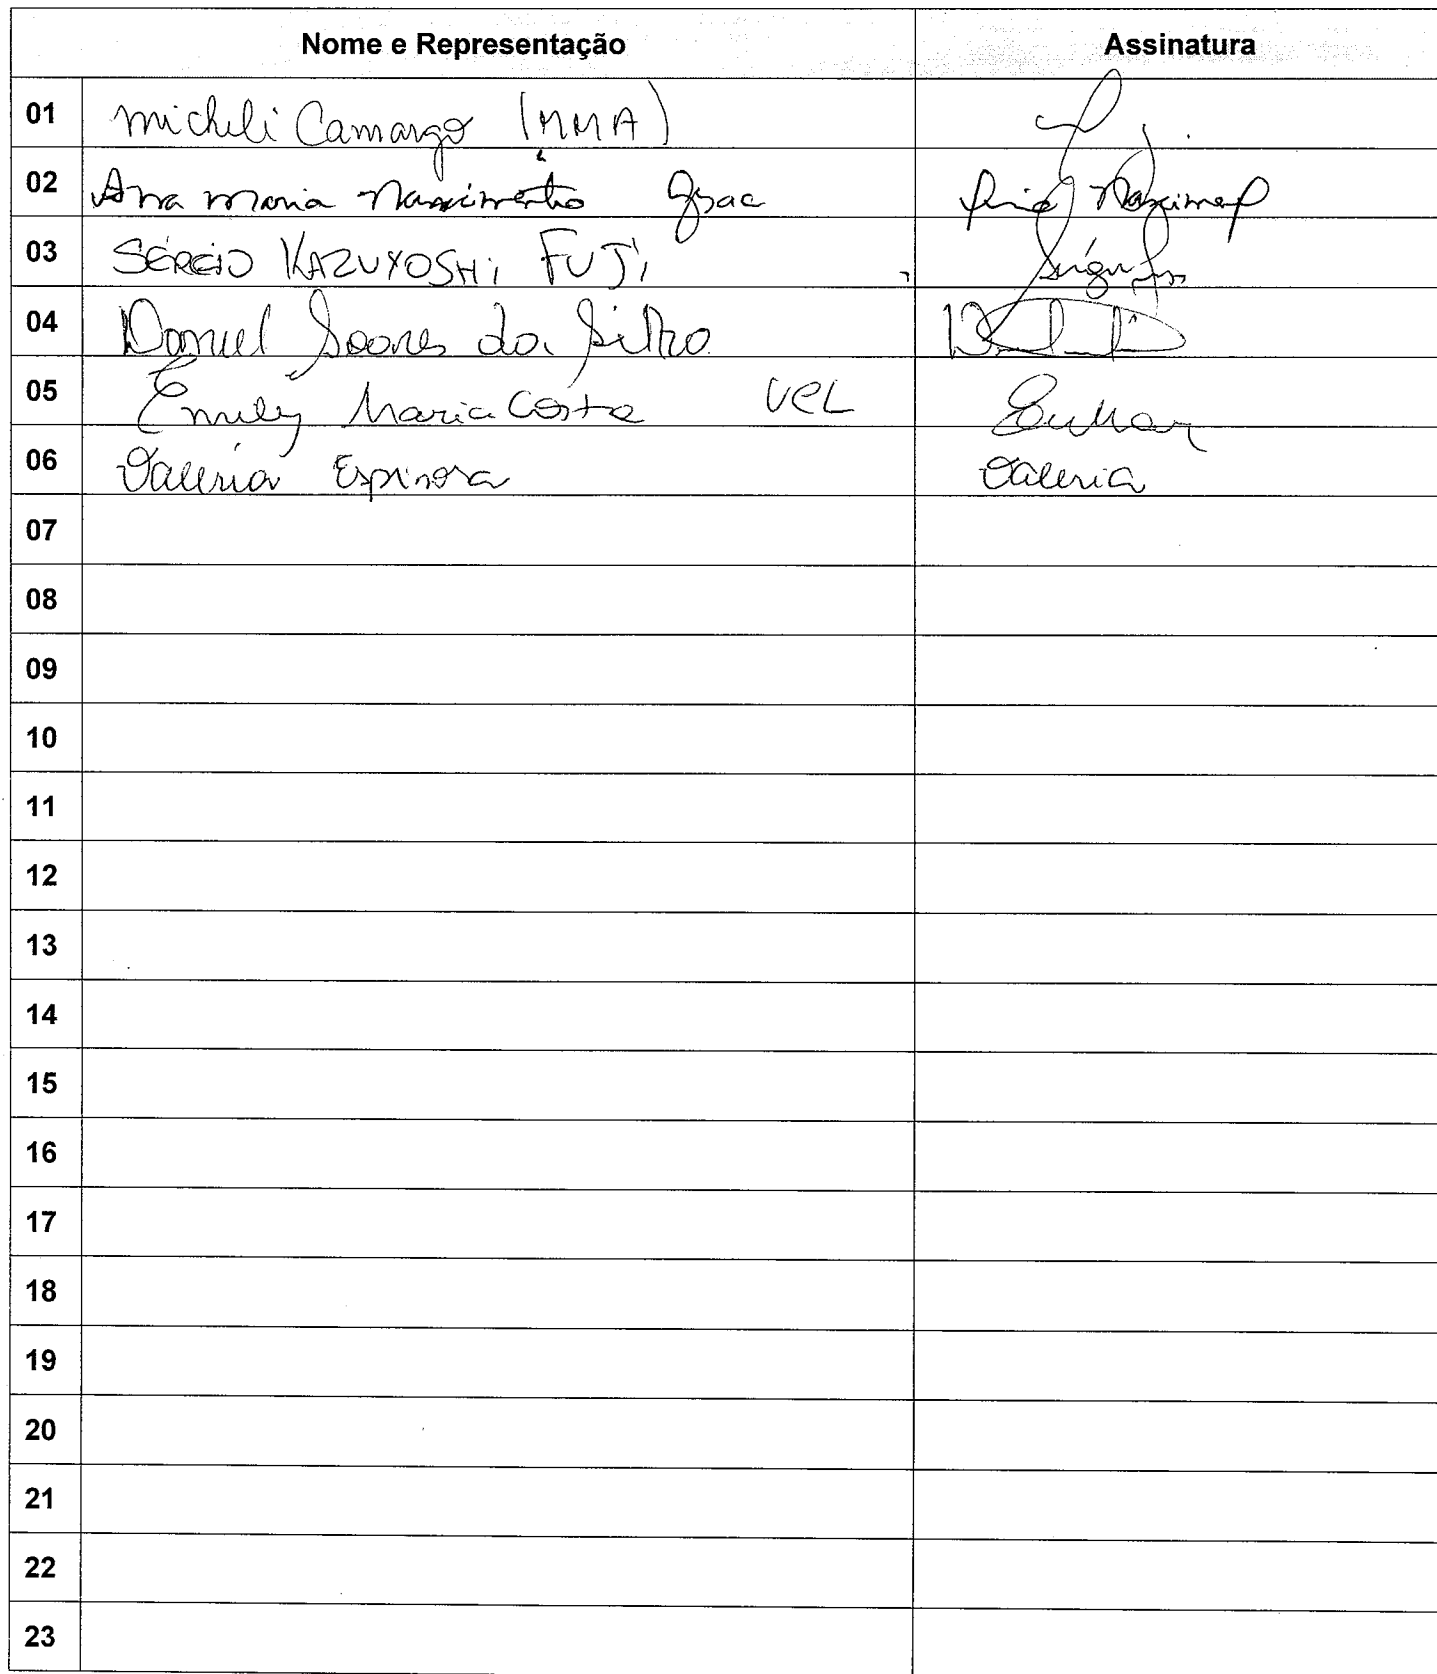 Nome e Representação Assinatura
01 Micheli Camargo (MMA)
02 Ana Maria Nascimento
03 SÉRGIO KAZUYOSHI FUJI
04 Daniel Soares da Silva
05 Emily Maria Costa VCL
06 Valeria Espinosa Valeria
07
08
09
10
11
12
13
14
15
16
17
18
19
20
21
22
23